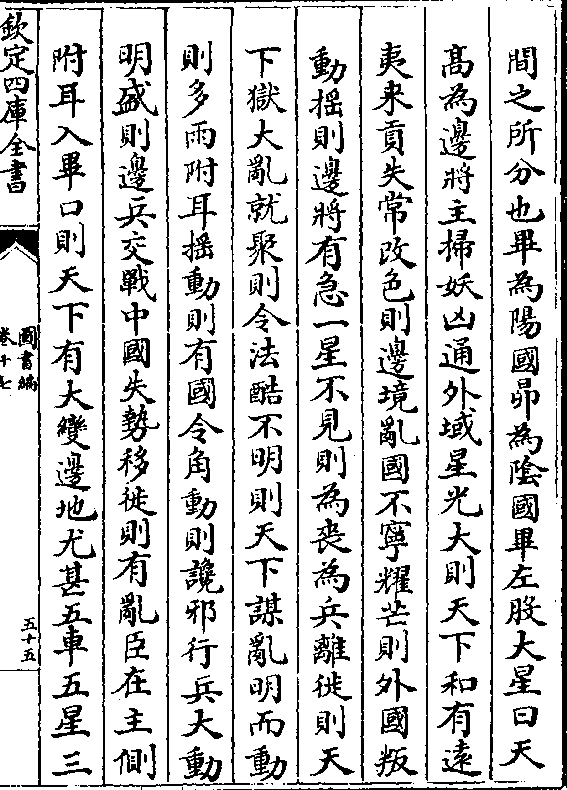 間之所分也畢為陽國昴為陰國畢左股大星曰天
髙為邊將主掃妖凶通外域星光大則天下和有逺
夷来貢失常改色則邊境亂國不寧耀芒則外國叛
動揺則邊將有急一星不見則為喪為兵離徙則天
下獄大亂就聚則令法酷不明則天下謀亂明而動
則多雨附耳揺動則有國令角動則讒邪行兵大動
明盛則邊兵交戰中國失勢移徙則有亂臣在主側
附耳入畢口則天下有大變邊地尤甚五車五星三
欽定四庫全書
圖書編
卷十七
五十五